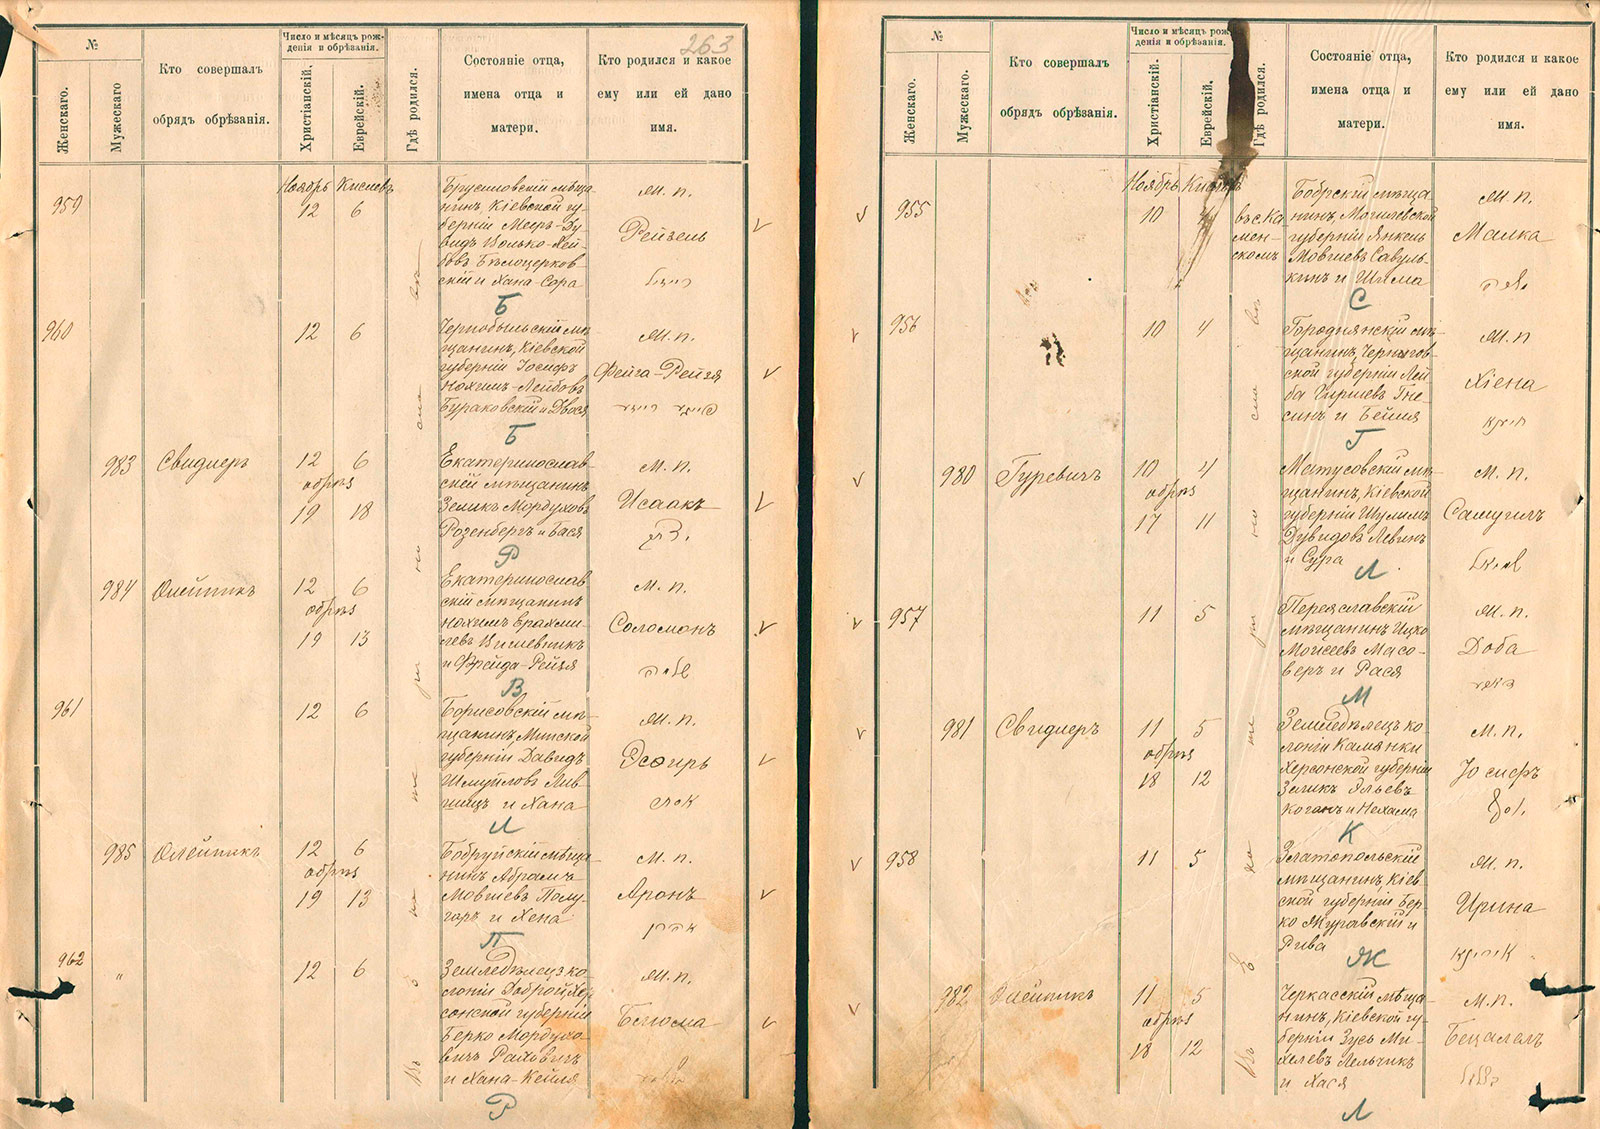 263
№
Женскаго.
Мужескаго
Кто совершалъ
обрядъ обрѣзанія.
Число и мѣсяцъ рож-
денія и обрѣзанія.
Христіанскій.
Еврейскій.
Гдѣ родился.
Состояніе отца,
имена отца и
матери.
Кто родился и какое
ему или ей дано
имя.
Ноябрь Кислевъ
959
12 6
Брусиловскій мѣща-
нинъ Кіевской гу-
берніи Меер-Ду-
видъ Волько-Лей-
бовъ Бѣлоцерков-
скій и Хана-Сора
Б
М. п.
Рейзель
רייזיל
960
12 6
Чернобыльскій мѣ-
щанинъ, Кіевской
губерніи Іосифъ
Нохим-Лейбовъ
Бураковскій и Двося
Б
М. п.
Фейга-Рейзя
פייגע רייזע
983
Свидлеръ
12 6
обрѣз
19 18
Екатеринослав-
скій мѣщанинъ
Зеликъ Мордуховъ
Розенбергъ и Бася
Р
М. п.
Исаакъ
יצחק
984
Олейникъ
12 6
обрѣз
19 13
Екатеринослав
скій мѣщанинъ
Нохимъ Ерахми-
левъ Вишевникъ
и Фрейда-Рейзя
В
М. п.
Соломонъ
שלמה
961
12 6
Борисовскій мѣ-
щанинъ, Минской
губерніи Давидъ
Шмуйловъ Лив-
шицъ и Хана
Л
М. п.
Эсѳирь
אסתר
985
Олейникъ
12 6
обрѣз
19 13
Бобруйскій мѣща-
нинъ Абрамъ
Мовшевъ Полу-
гаръ и Хена
П
М. п.
Аронъ
אהרן
962
"
12 6
Земледѣлецъ ко-
лоніи Доброй, Хер
сонской губерніи
Берко Мордухо-
вичъ Раховичъ
и Хана-Кейля
Р
М. п.
Блюма
В
№
Женскаго.
Мужескаго.
Кто совершалъ
обрядъ обрѣзанія.
Число и мѣсяцъ рож-
денія и обрѣзанія.
Христіанскій.
Еврейскій.
Гдѣ родился.
Состояніе отца,
имена отца и
матери.
Кто родился и какое
ему или ей дано
имя.
Ноябрь Кислевъ
955
10 4
въ с. Ка
мен-
скомъ
Бобрскій мѣща-
нинъ, Могилевской
губерніи Янкель
Мовшевъ Савуль-
кинъ и Шима
С
М. п.
Малка
מלכה
956
10 4
Городнянскій мѣ-
щанинъ, Чернигов-
ской губерніи Лей-
ба Гиршевъ Гне-
синъ и Бейля
Г
М. п
Хіена
חיענא
980
Гуревичъ
10 4
обрѣз
17 11
Матусовскій мѣ-
щанинъ, Кіевской
губерніи Шулимъ
Дувидовъ Левинъ
и Сура
Л
М. п.
Самуилъ
957
11 5
Переяславскій
мѣщанинъ Ицко
Моисеевъ Масо-
веръ и Рася
М
М. п.
Доба
981
Свидлеръ
11 5
обрѣз
18 12
Земледѣлецъ ко-
лоніи Камянки
Херсонской губерніи
Зеликъ Яльевъ
Коганъ и Нехама
К
М. п.
Іосифъ
יוסף
958
11 5
Златопольскій
мѣщанинъ, Кіев
ской губерніи Бер-
ко Журавскій и
Рива
Ж
М. п.
Ирина
982
Олейникъ
11 5
обрѣз
18 12
Черкасскій мѣща-
нинъ, Кіевской гу-
берніи Зусь Ми-
хелевъ Лельчикъ
и Хася
Л
М. п.
Бецалелъ
בצלאל